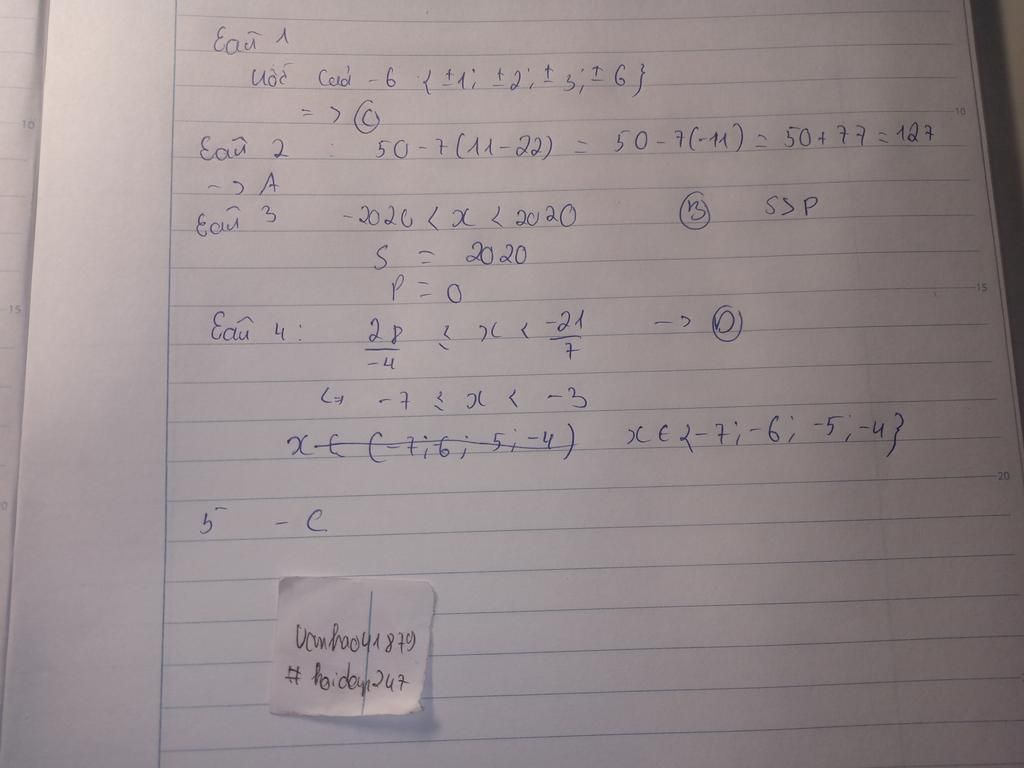 Câu 1
Ước của -6 {±1; ±2; ±3; ±6}
=> C
Câu 2 : 50-7(11-22) = 50-7(-11) = 50+77=127
-> A
Câu 3 -2020 < x < 2020 B S>P
S = 2020
P = 0
Câu 4: 28/-4 ≤ x < -21/7 -> D
<=> -7 ≤ x < -3
x ∈ (-7; 6; 5; -4) x ∈ {-7; -6; -5; -4}
5 - C
Vanhao41879
# hoidap247